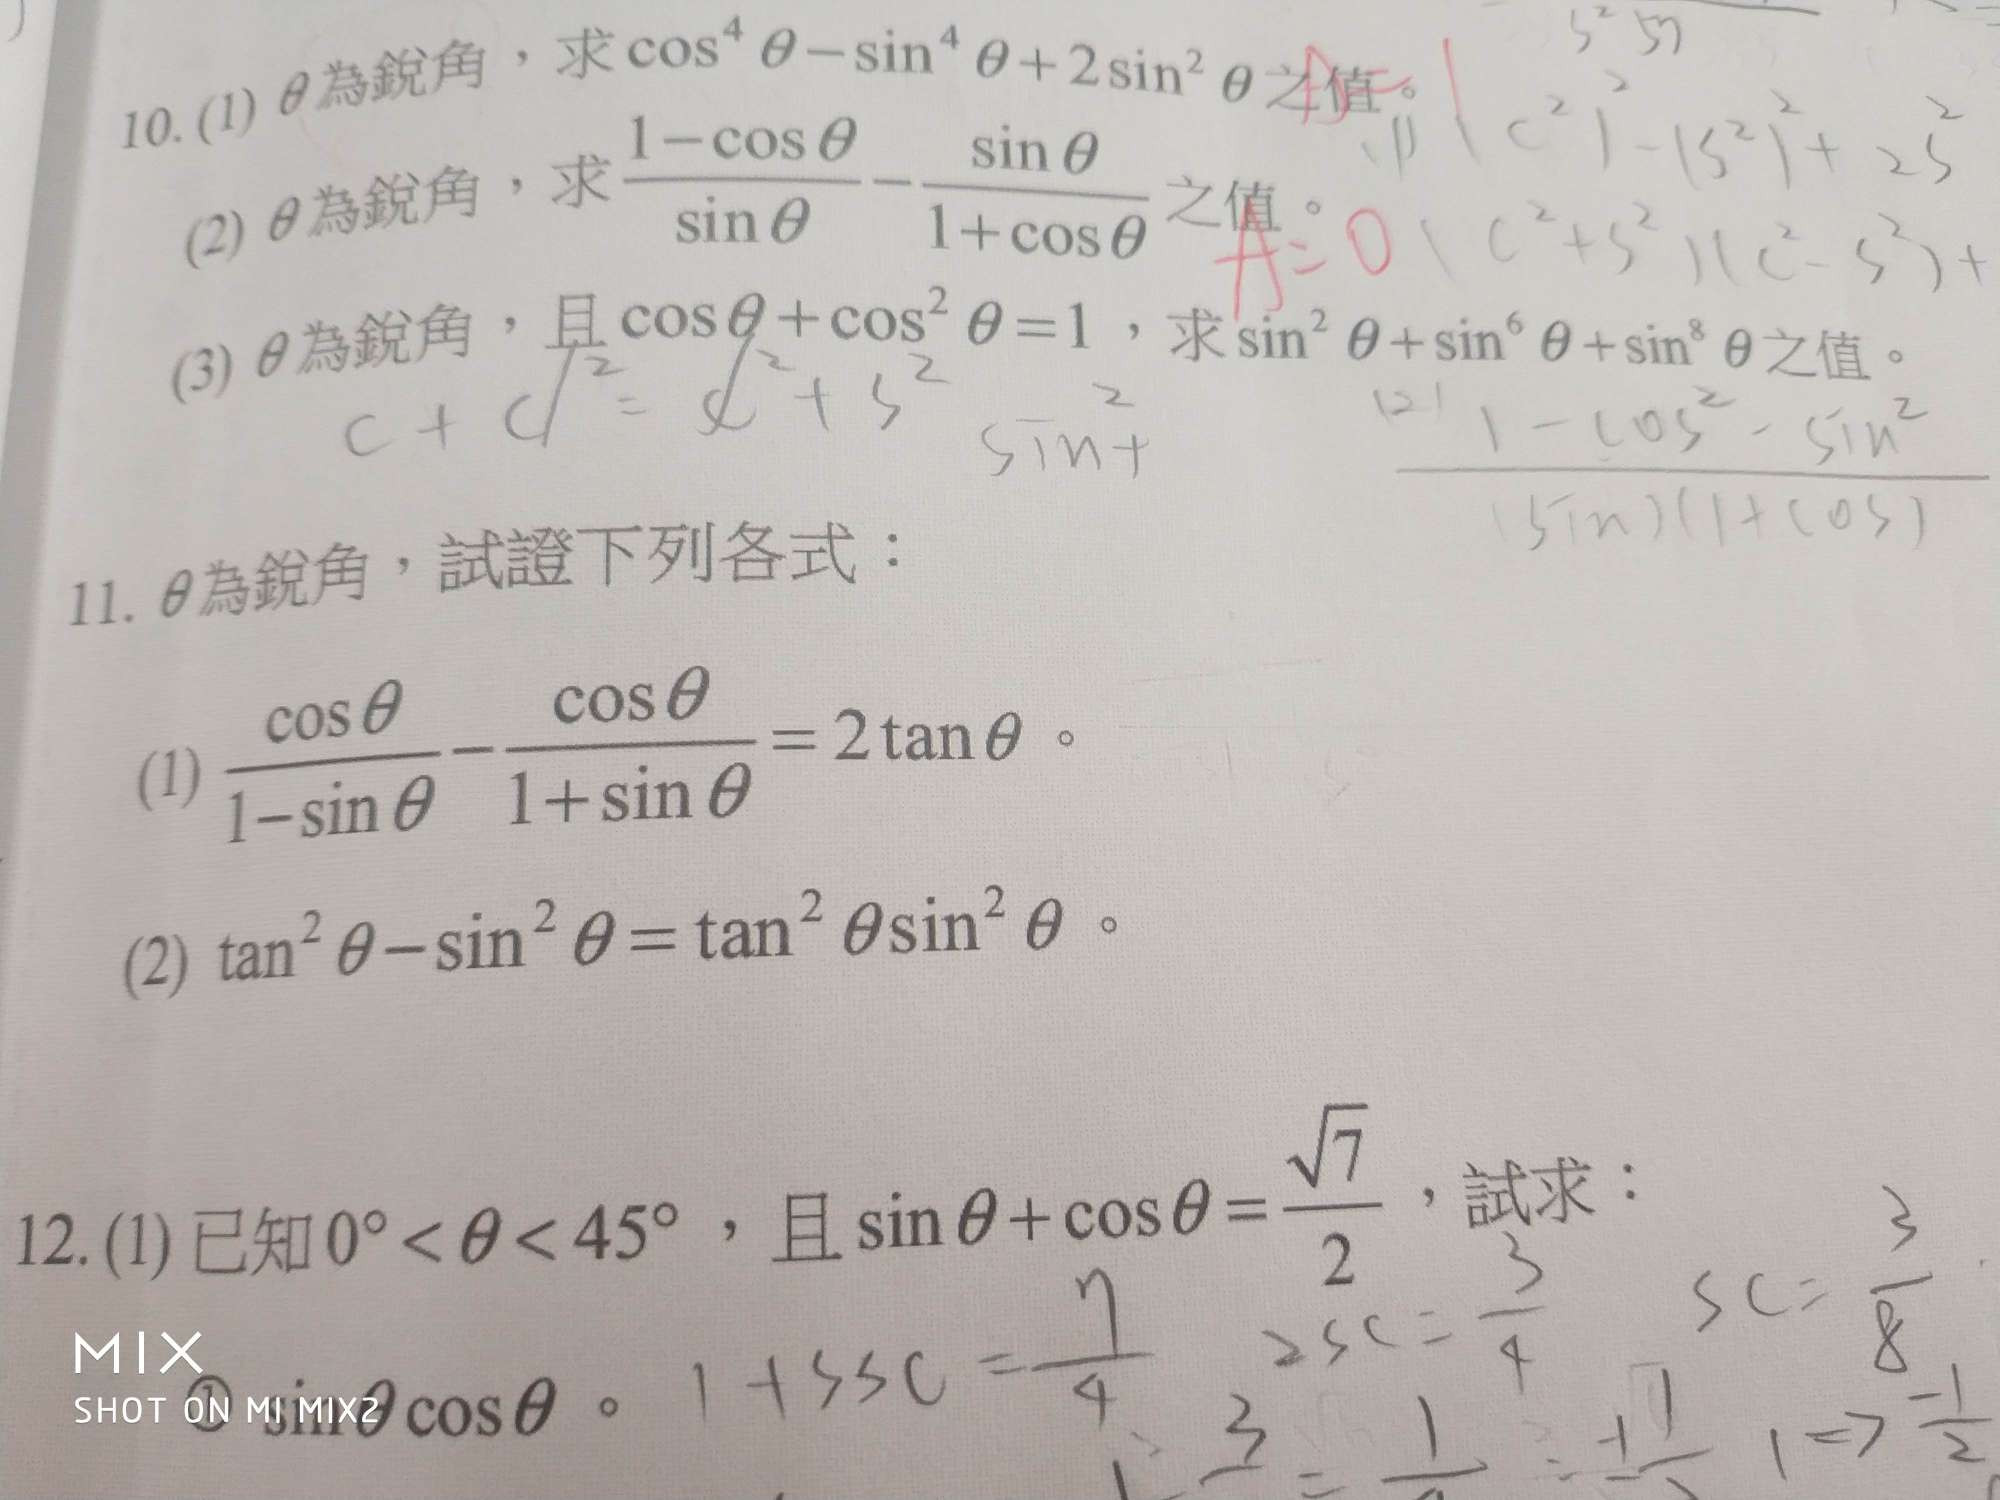 10. (1) θ為銳角，求 cos⁴ θ − sin⁴ θ + 2 sin² θ 之值。 A=1
s² 5η
(1) (c²)² − (s²)² + 2s²
(2) θ為銳角，求 (1−cosθ)/(sinθ) − (sinθ)/(1+cosθ) 之值。 A=0
(c²+s²)(c²−s²)+
(3) θ為銳角，且 cosθ + cos² θ = 1，求 sin² θ + sin⁶ θ + sin⁸ θ 之值。
c + c² = c² + s² sin²+
(2) 1 − cos² − sin²
(sin)(1+cos)
11. θ為銳角，試證下列各式：
(1) cosθ/(1−sinθ) − cosθ/(1+sinθ) = 2 tanθ。
(2) tan² θ − sin² θ = tan² θ sin² θ。
12. (1) 已知 0° < θ < 45°，且 sinθ + cosθ = √7/2，試求：
① sinθ cosθ。 1+2sc = 7/4 2sc = 3/4 sc = 3/8
= 1/4 = ±1/2 1 => −1/2
MIX
SHOT ON MI MIX2